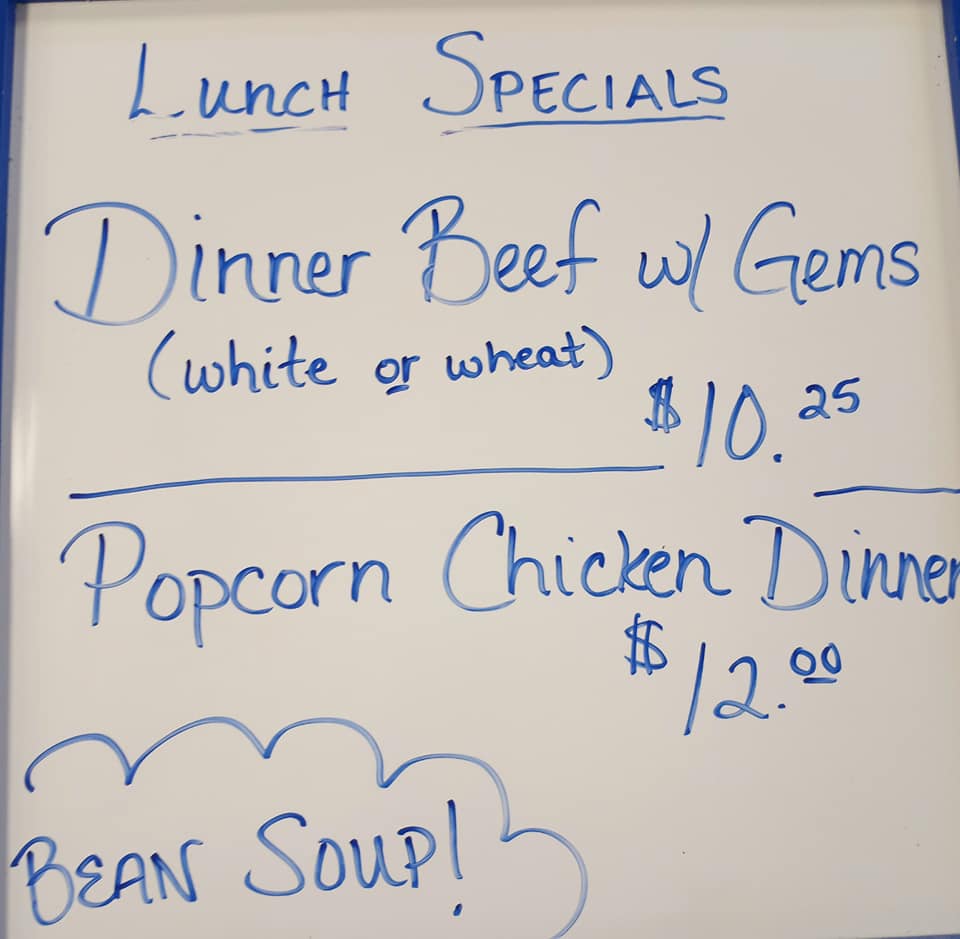 LUNCH SPECIALS
Dinner Beef w/ Gems
(white or wheat)
$10.25
Popcorn Chicken Dinner
$12.00
BEAN SOUP!